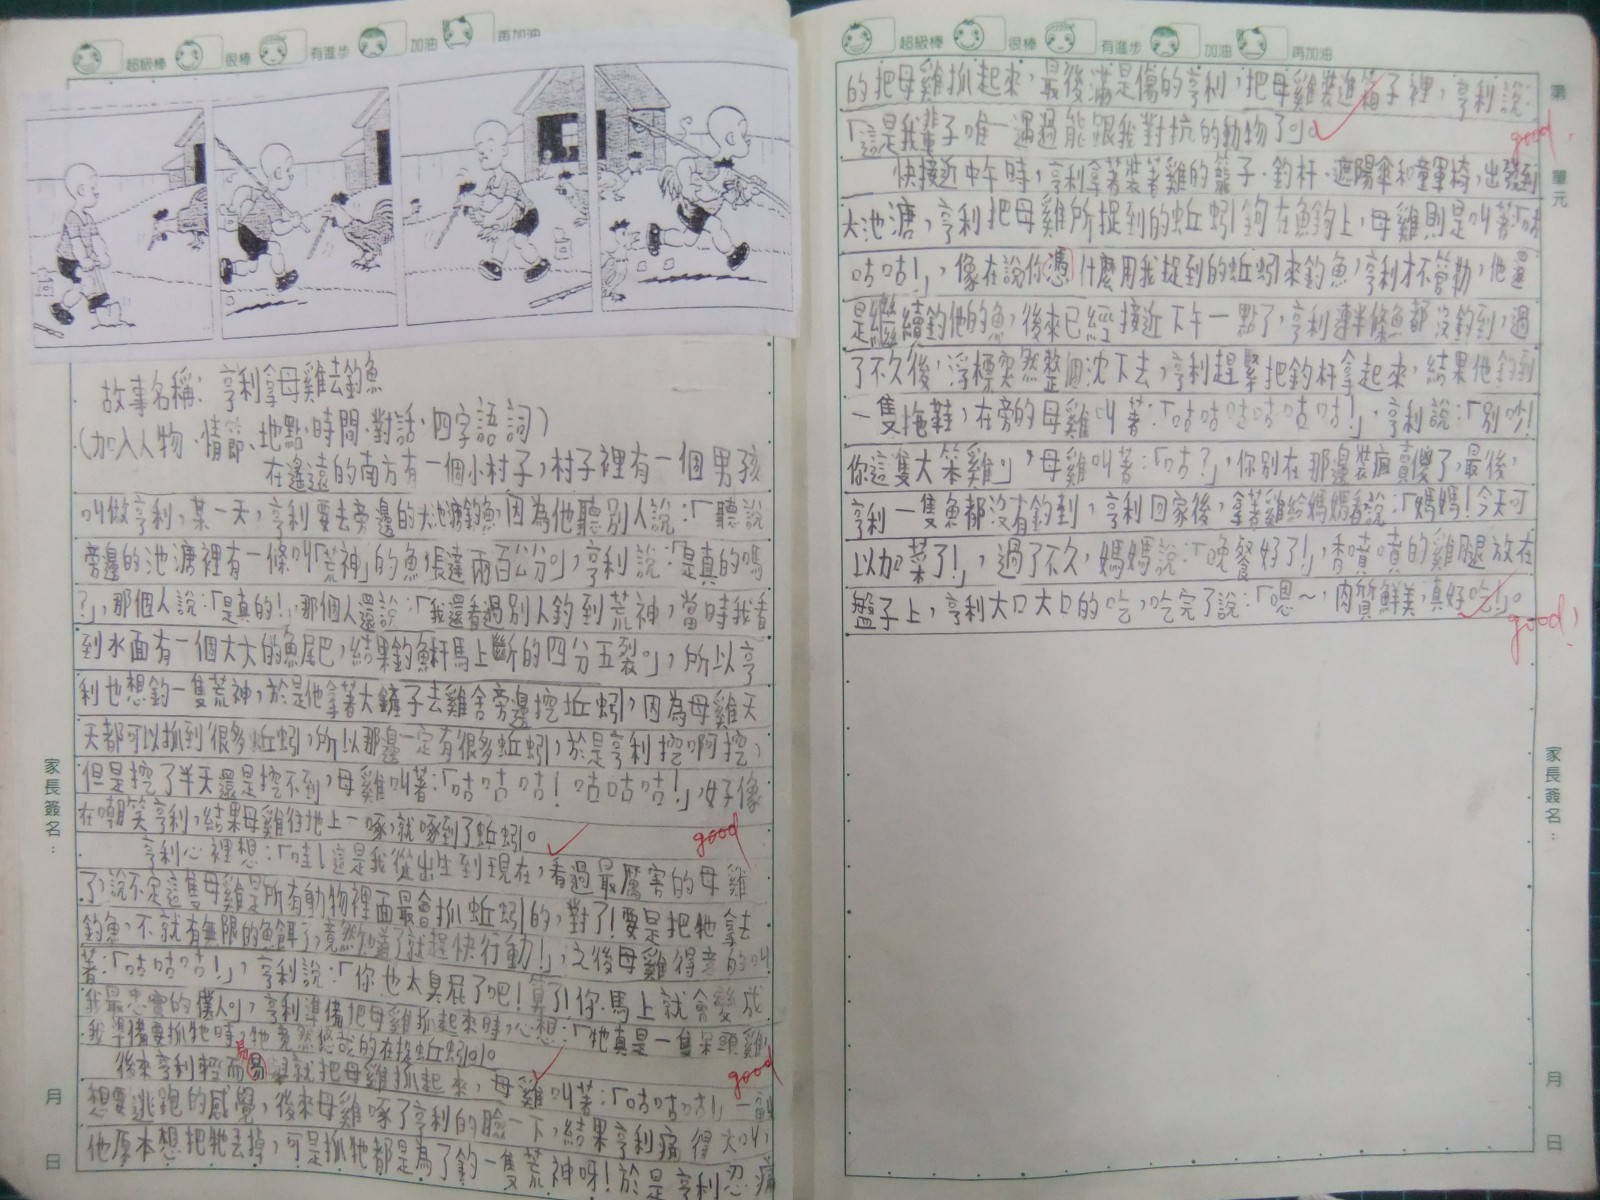 超級棒 很棒 有進步 加油 再加油
故事名稱：亨利拿母雞去釣魚
（加入人物、情節、地點、時間、對話、四字語詞）
在遙遠的南方有一個小村子，村子裡有一個男孩
叫做亨利，某一天，亨利要去旁邊的大池塘釣魚，因為他聽別人說：「聽說
旁邊的池溏裡有一條叫「荒神」的魚，長達兩百公分。」，亨利說：「是真的嗎
？」，那個人說：「是真的！，那個人還說：「我還看過別人釣到荒神，當時我看
到水面有一個大大的魚尾巴，結果釣魚杆馬上斷的四分五裂。」，所以亨
利也想釣一隻荒神，於是他拿著大鏟子去雞舍旁邊挖蚯蚓，因為母雞天
天都可以抓到很多蚯蚓，所以那邊一定有很多蚯蚓，於是亨利挖啊挖，
但是挖了半天還是挖不到，母雞叫著：「咕咕咕！咕咕咕！」，好像
在嘲笑亨利，結果母雞往地上一啄，就啄到了蚯蚓。
good
亨利心裡想：「哇！這是我從出生到現在，看過最厲害的母雞
了，說不定這隻母雞是所有動物裡面最會抓蚯蚓的，對了！要是把牠拿去
釣魚，不就有無限的魚餌了，竟然知道了就趕快行動！」，之後母雞得意的叫
著：「咕咕咕！」，亨利說：「你也太臭屁了吧！算了！你馬上就會變成
我最忠實的僕人。」，亨利準備把母雞抓起來時，心想：「牠真是一隻呆頭雞，
我準備要抓牠時，牠竟然悠哉的在捉蚯蚓。」。
後來亨利輕而易舉就把母雞抓起來，母雞叫著：「咕咕咕！」一副
good
想要逃跑的感覺，後來母雞啄了亨利的臉一下，結果亨利痛得大叫，
他原本想把牠丟掉，可是抓牠都是為了釣一隻荒神呀！於是亨利忍痛
家長簽名：
月 日
超級棒 很棒 有進步 加油 再加油
第 單元
的把母雞抓起來，最後滿是傷的亨利，把母雞裝進箱子裡，亨利說：
「這是我輩子唯一遇過能跟我對抗的動物了。」。
good
快接近中午時，亨利拿著裝著雞的籠子、釣杆、遮陽傘和童軍椅，出發到
大池溏，亨利把母雞所捉到的蚯蚓鉤在魚鉤上，母雞則是叫著「咕
咕咕！」，像在說你憑什麼用我捉到的蚯蚓來釣魚，亨利才不管勒，他還
是繼續釣他的魚，後來已經接近下午一點了，亨利連半條魚都沒釣到，過
了不久後，浮標突然整個沈下去，亨利趕緊把釣杆拿起來，結果他釣到
一隻拖鞋，在旁的母雞叫著：「咕咕咕咕咕咕！」，亨利說：「別吵！
你這隻大笨雞。」，母雞叫著：「咕？」，你別在那邊裝瘋賣傻了，最後，
亨利一隻魚都沒有釣到，亨利回家後，拿著雞給媽媽看說：「媽媽！今天可
以加菜了！」，過了不久，媽媽說：「晚餐好了！」，香噴噴的雞腿放在
盤子上，亨利大口大口的吃，吃完了說：「嗯～，肉質鮮美，真好吃！」。
good！
家長簽名：
月 日